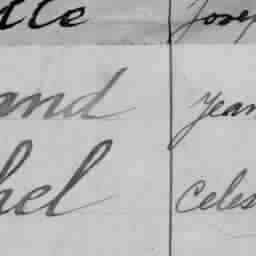 tte Josep
and Jean
hel Celes